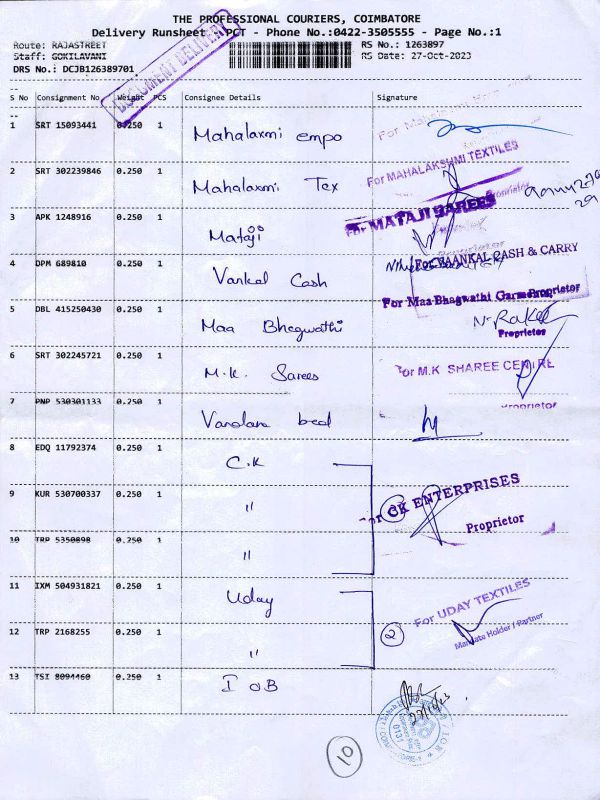 THE PROFESSIONAL COURIERS, COIMBATORE
Delivery Runsheet - PCT - Phone No.:0422-3505555 - Page No.:1
Route: RAJASTREET RS No.: 1263897
Staff: GOKILAVANI RS Date: 27-Oct-2023
DRS No.: DCJB126389701
DOCUMENT DELIVERY
S No Consignment No Weight PCS Consignee Details Signature
1 SRT 15093441 0.250 1 Mahalaxmi empo
2 SRT 302239846 0.250 1 Mahalaxmi Tex For MAHALAKSHMI TEXTILES
Proprietor
3 APK 1248916 0.250 1 Mataji For MATAJI SAREES
Proprietor
4 DPM 689810 0.250 1 Vankal Cash For VAANKAL CASH & CARRY
Proprietor
5 DBL 415250430 0.250 1 Maa Bhegwathi For Maa Bhagwathi Garments
N. Rakesh
Proprietor
6 SRT 302245721 0.250 1 M.K. Sarees For M.K SHAREE CENTRE
Proprietor
7 PNP 530301133 0.250 1
8 EDQ 11792374 0.250 1 C.K
9 KUR 530700337 0.250 1 " For CK ENTERPRISES
Proprietor
10 TRP 5350898 0.250 1 "
11 IXM 504931821 0.250 1 Uday For UDAY TEXTILES
12 TRP 2168255 0.250 1 " 2 Mandate Holder / Partner
13 TSI 8094460 0.250 1 I OB
27/10/23
10